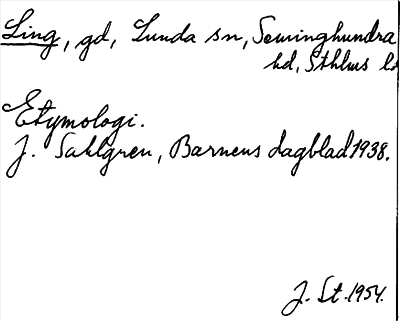 Ling, gd, Lunda sn, Seminghundra
hd, Sthlms l
Etymologi.
J. Sahlgren, Barnens dagblad 1938.
J. St. 1954.